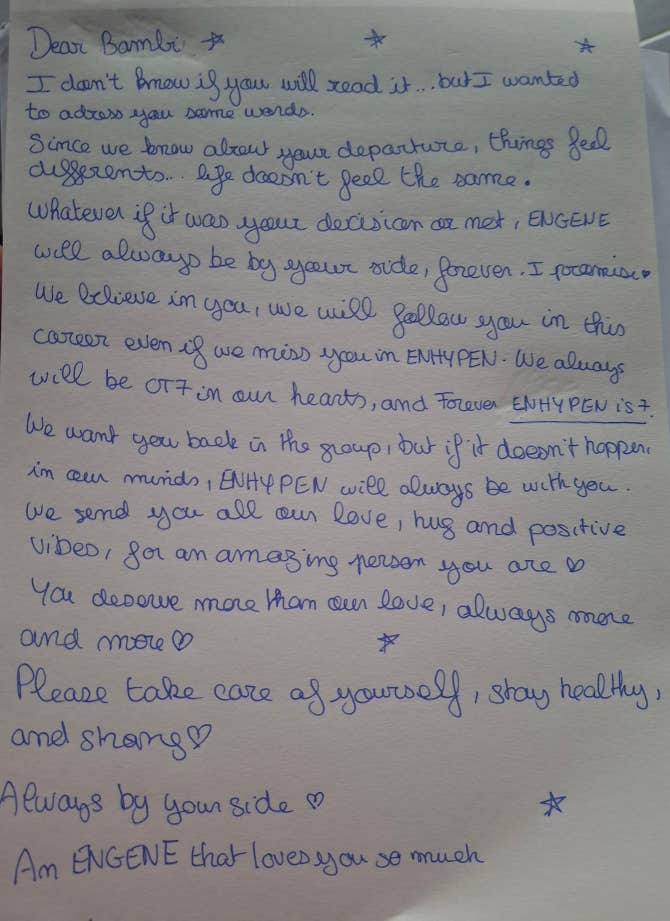 Dear Bambi ☆ ☆ ☆
I don't know if you will read it... but I wanted
to adress you some words.
Since we know about your departure, things feel
differents... life doesn't feel the same.
Whatever if it was your decision or not, ENGENE
will always be by your side, forever. I promise ♥
We believe in you, we will follow you in this
career even if we miss you in ENHYPEN. We always
will be OT7 in our hearts, and Forever ENHYPEN is 7.
We want you back in the group, but if it doesn't happen,
in our minds, ENHYPEN will always be with you.
We send you all our love, hug and positive
vibes, for an amazing person you are ♡
You deserve more than our love, always more
and more ♡ ☆
Please take care of yourself, stay healthy,
and strong ♡
Always by your side ♡ ☆
An ENGENE that loves you so much